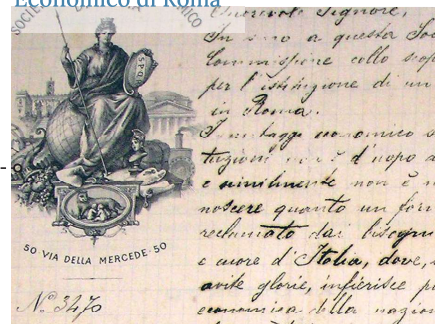 Economico di Roma
SOCIETÀ
ECONOMICO
SPQR
50 VIA DELLA MERCEDE 50
N.° 3470
Onorevole Signore,
In seno a questa So
Commissione collo scop
per l'istituzione di un
in Roma.
economico s
d'uopo d
e similmente non è
noscere quanto un for
reclamato dai bisogni
e cuore d'Italia, dove,
avite glorie, infierisce p
economica della nazion